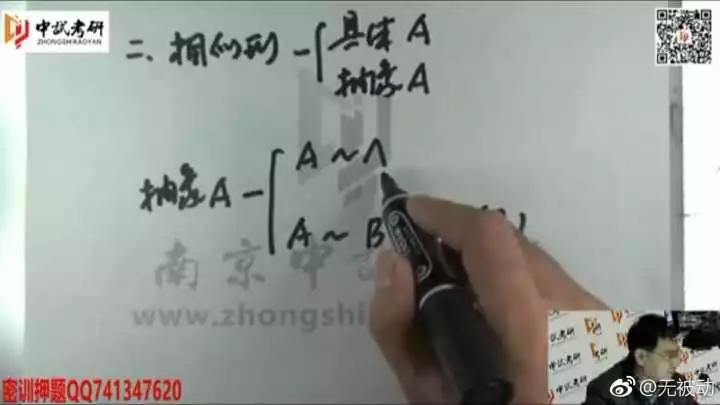 中试考研
ZHONGSHIKAOYAN
二、相似型 - { 具体 A
抽象 A
抽象 A - { A ~ Λ
A ~ B
南京中试
www.zhongshi
密训押题QQ741347620
中试考研
@无被动